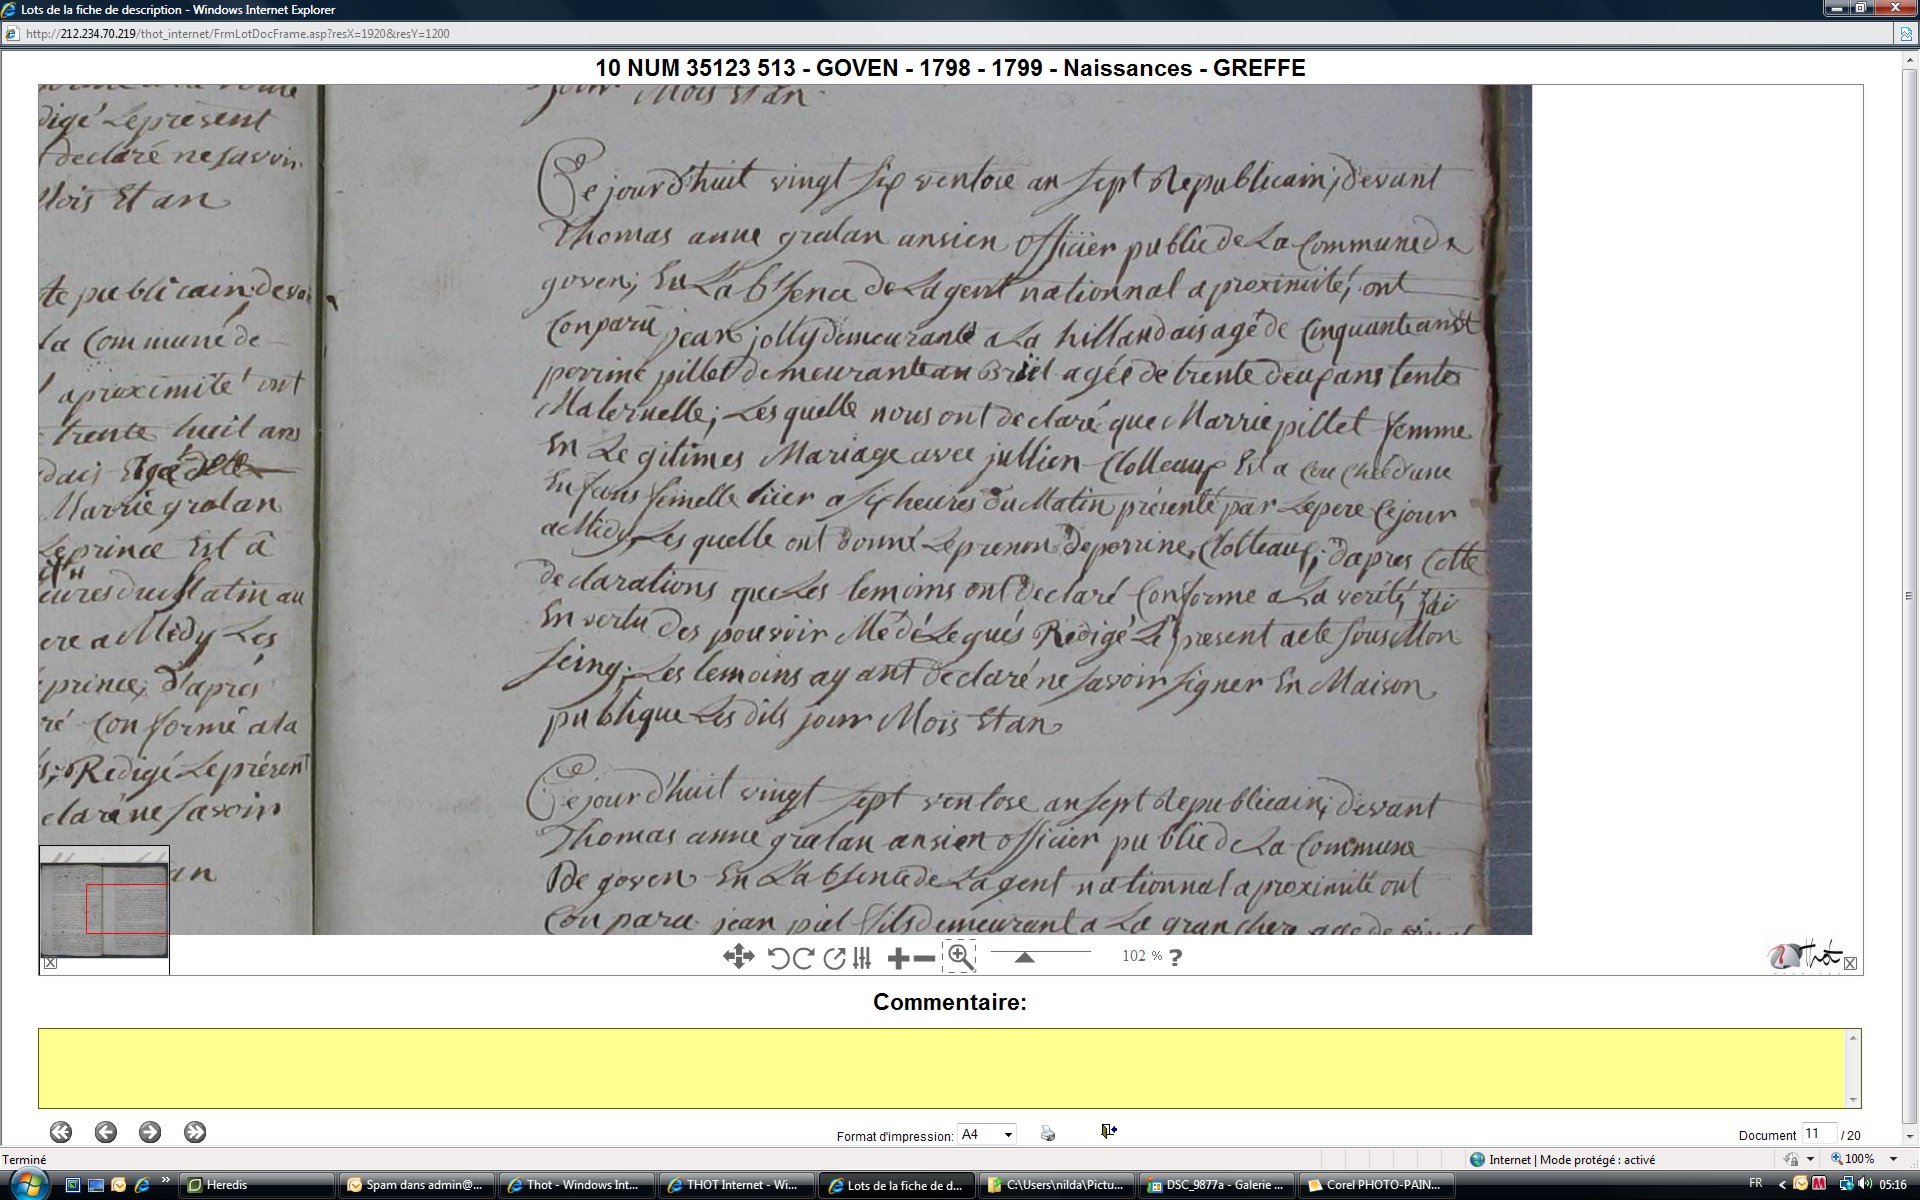 Lots de la fiche de description - Windows Internet Explorer
http://212.234.70.219/thot_internet/FrmLotDocFrame.asp?resX=1920&resY=1200
10 NUM 35123 513 - GOVEN - 1798 - 1799 - Naissances - GREFFE
digé Le present
declaré ne savoir
Mois Et an
publicain; deva
la Commune de
aproximité ont
trente huit ans
dais
Marrie gralan
Leprince Est a
eures du Matin au
ere a Midy Les
prince; d'aprés
ré Conforme a la
Redigé Le présent
claré ne savoir
an
jour Mois Et an
Ce jourd'huit vingt six ventose an sept Republicain; devant
Thomas anne gralan ansien officier public de La Commune de
goven; En L'absence de L'agent nationnal a proximité; ont
Conparu jean jolly demeurant a La hillandais agé de Cinquante ans et
perrine pillet demeurante au Briel agée de trente deux ans tente
Maternelle; Les quelle nous ont declaré que Marrie pillet femme
En Legitimes Mariage avec jullien Clolleaux Est a couchée d'une
Enfans femelle hier a six heures du Matin présenté par Le pere Ce jour
a Midy, Les quelle ont donné Le prenon de perrine Clolleaux; d'apres Cette
declarations que Les temoins ont declaré Conforme a La verité, j'ai
En vertu des pouvoir Me délegués Redigé Le present acte sous Mon
seing; Les temoins ay ant declaré ne savoir signer En Maison
publique Les dits jour Mois Et an
Ce jourd'huit vingt sept ventose an sept Republicain; devant
Thomas anne gralan ansien officier public de La Commune
De goven En L'absence de L'agent nationnal a proximité ont
Conparu jean piel fils demeurant a La
102 % ?
Thot
Commentaire:
Format d'impression: A4
Document 11 / 20
Terminé
Internet | Mode protégé : activé
100%
Heredis
Spam dans admin@...
Thot - Windows Int...
THOT Internet - Wi...
Lots de la fiche de d...
C:\Users\nilda\Pictu...
DSC_9877a - Galerie ...
Corel PHOTO-PAIN...
FR
05:16